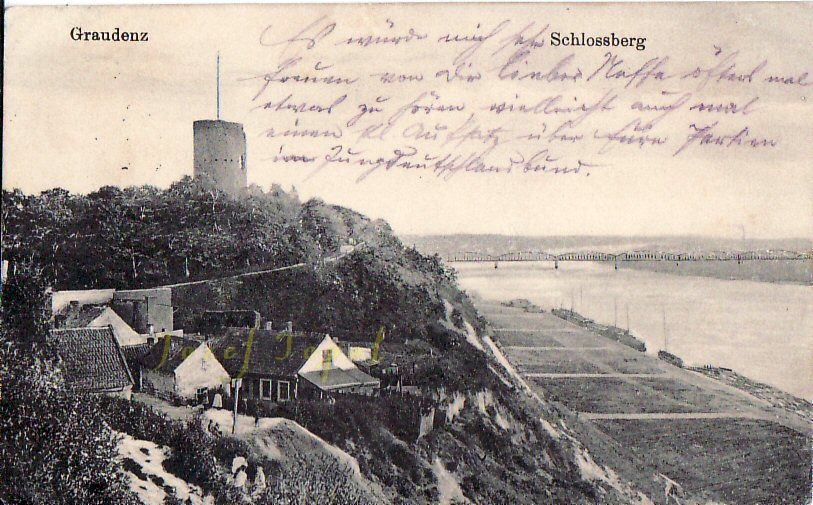 Graudenz
Schlossberg
Es würde mich sehr
freuen von Dir lieber Neffe öfters mal
etwas zu hören vielleicht auch mal
einen kl Aufsatz über Eure Partien
im Jungdeutschlandbund.
Josef